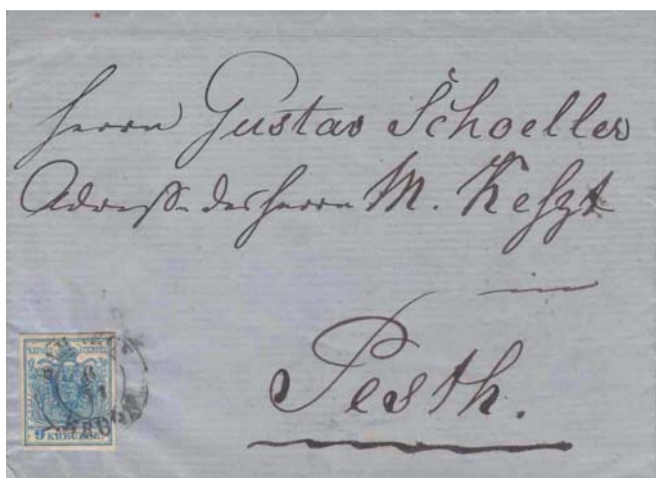 Herrn Gustav Schoeller
Adresse des Herrn M. Keszt
in
Pesth.
9 KREUZER